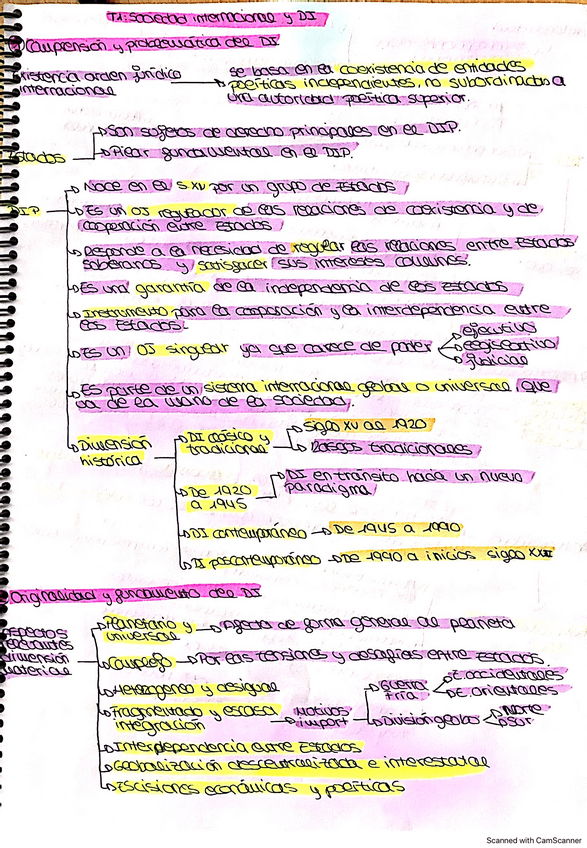 T1: Sociedad internacional y DI
Comprensión y problemática del DI
Existencia orden jurídico
internacional
se basa en la coexistencia de entidades
políticas independientes, no subordinadas a
una autoridad política superior.
Estados
Son sujetos de derecho principales en el DIP.
Pilar fundamental en el DIP.
DIP
Nace en el S.XV por un grupo de Estados
Es un OJ regulador de las relaciones de coexistencia y de
cooperación entre Estados
Responde a la necesidad de regular las relaciones entre Estados
soberanos y satisfacer sus intereses comunes.
Es una garantía de la independencia de los Estados
Instrumento para la cooperación y la interdependencia entre
los Estados.
Es un OJ singular ya que carece de poder
ejecutivo
legislativo
judicial
Es parte de un sistema internacional global o universal que
va de la mano de la sociedad.
Dimensión
histórica
DI clásico y
tradicional
Siglo XV al 1920
Rasgos tradicionales
De 1920
a 1945
DI en tránsito hacia un nuevo
paradigma
DI contemporáneo
De 1945 a 1990
DI poscontemporáneo
De 1990 a inicios siglo XXI
Originalidad y fundamento del DI
Aspectos
relevantes
dimensión
material
Planetario y
universal
Afecta de forma general al planeta
Complejo
Por las tensiones y desafíos entre Estados.
Heterogéneo y desigual
Fragmentado y escasa
integración
Motivos
import
Guerra
fría
E. occidentales
E. orientales
División global
Norte
Sur
Interdependencia entre Estados
Globalización descentralizada e interestatal
Escisiones económicas y políticas
Scanned with CamScanner